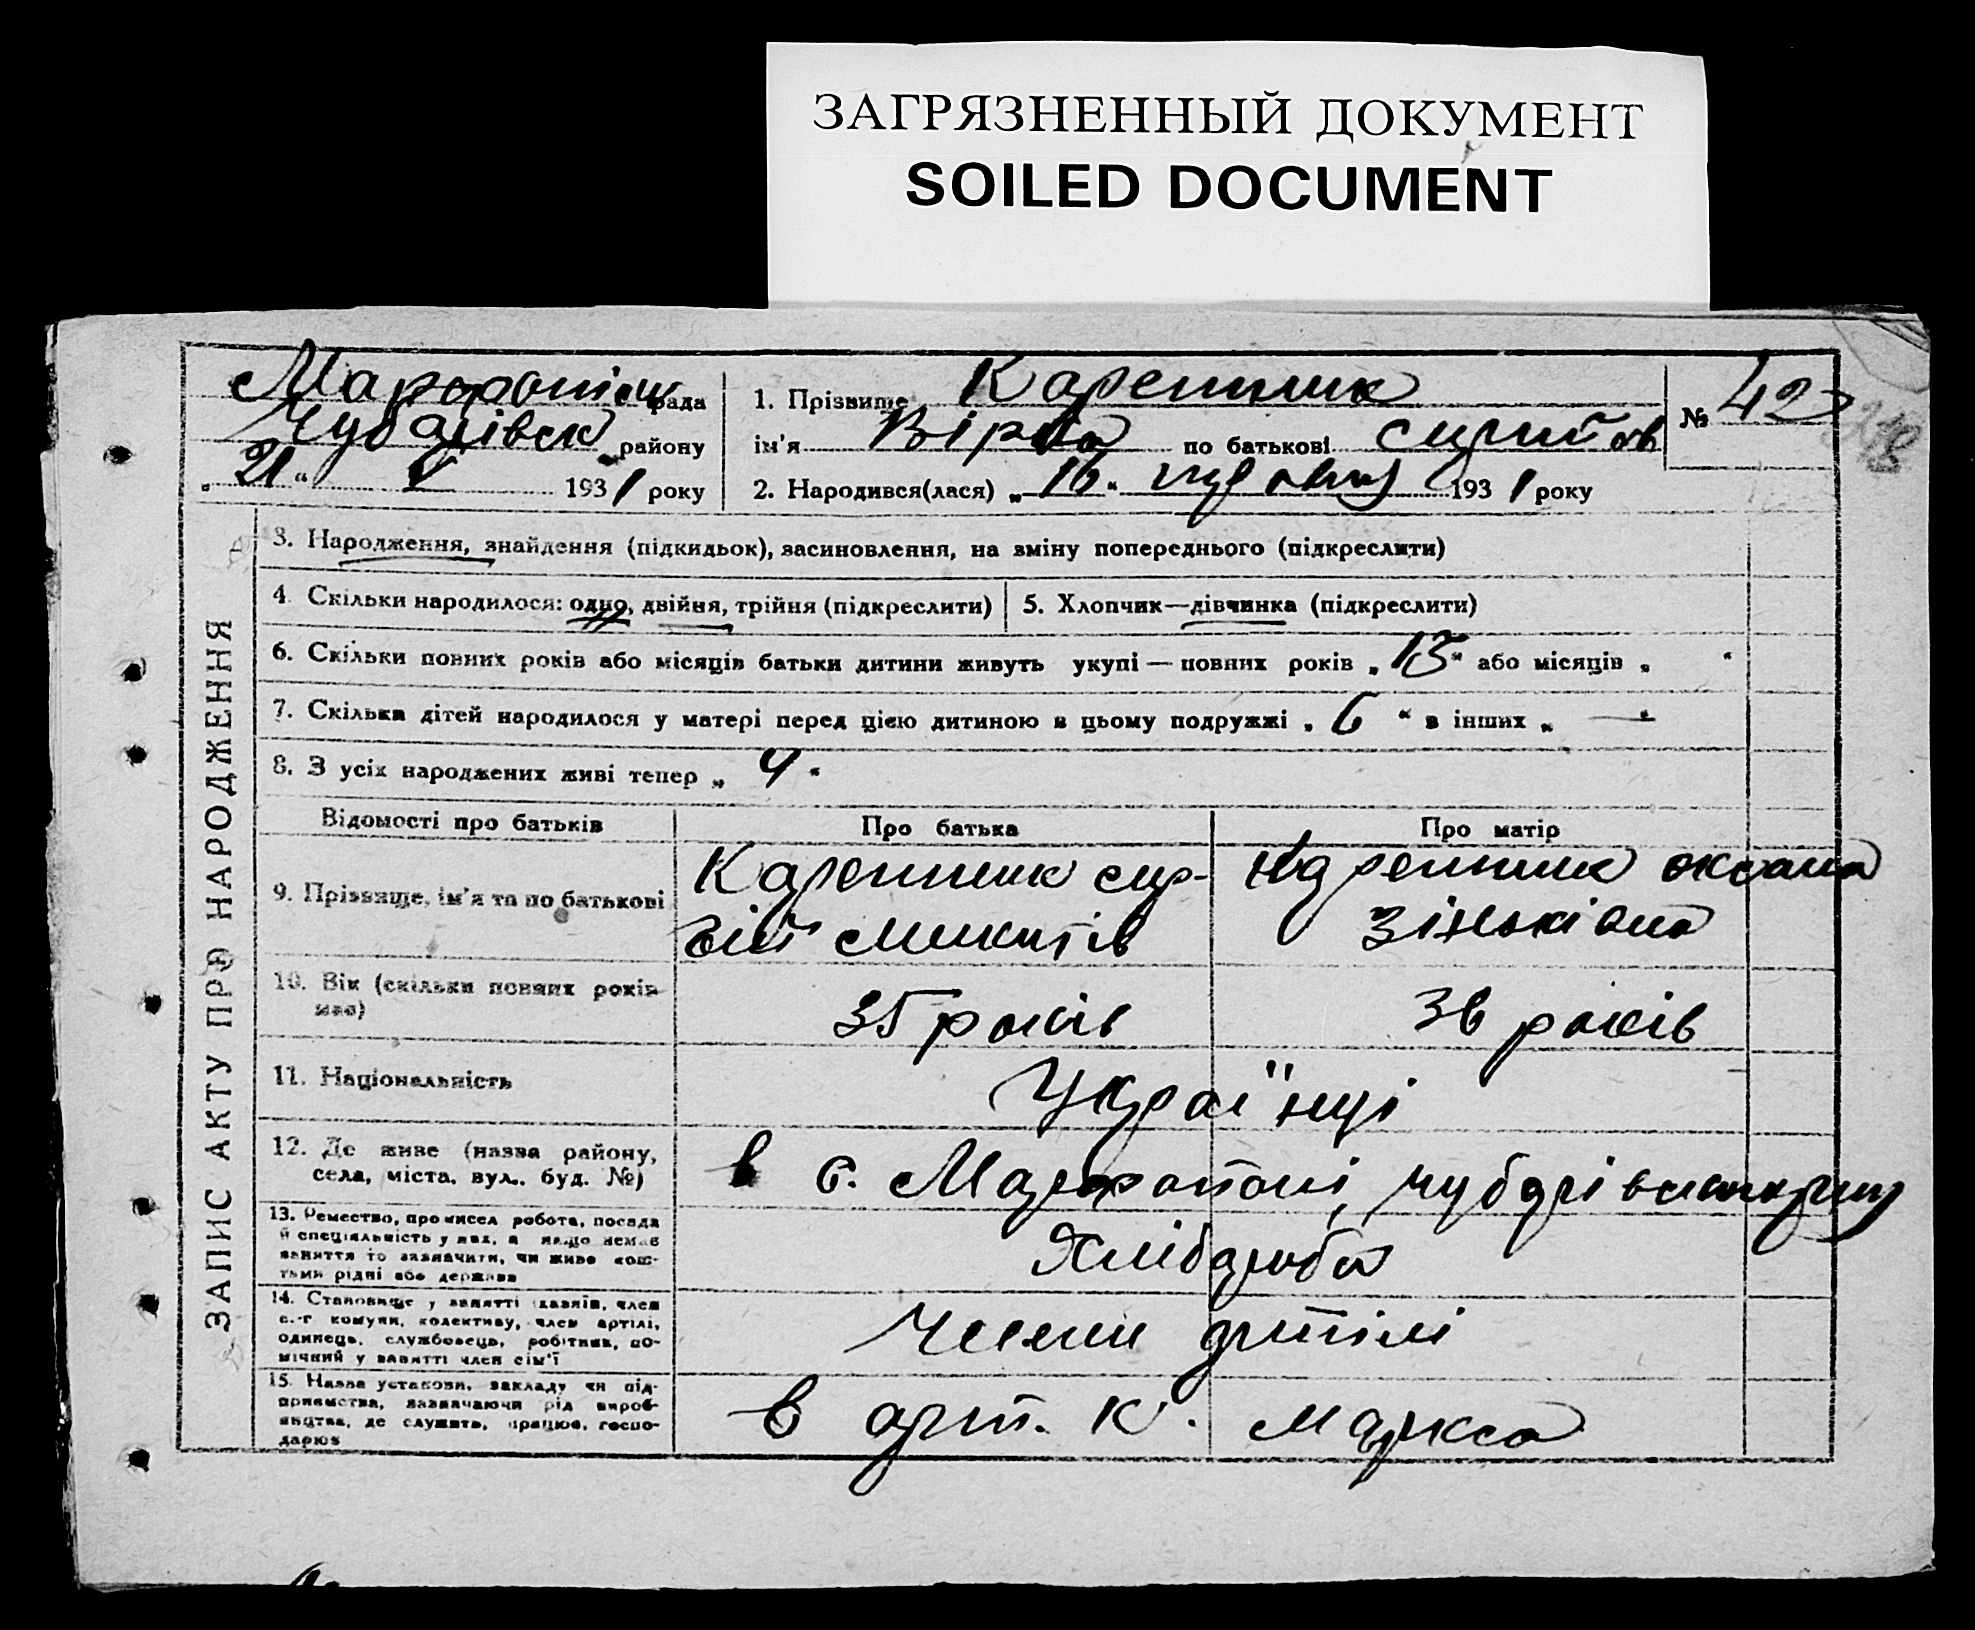 ЗАГРЯЗНЕННЫЙ ДОКУМЕНТ
SOILED DOCUMENT
рада
Чубарівськ району
„ 21 “ V 1931 року
1. Прізвище Каренник
ім'я Віра по батькові
№ 42
2. Народився(лася) „ 16 “ 1931 року
ЗАПИС АКТУ ПРО НАРОДЖЕННЯ
3. Народження, знайдення (підкидьок), засиновлення, на зміну попереднього (підкреслити)
4. Скільки народилося: одно, двійня, трійня (підкреслити)
5. Хлопчик—дівчинка (підкреслити)
6. Скільки повних років або місяців батьки дитини живуть укупі — повних років „ 13 “ або місяців „ “
7. Скільки дітей народилося у матері перед цією дитиною в цьому подружжі „ 6 “ в інших „ — “
8. З усіх народжених живі тепер „ 4 “
Відомості про батьків
Про батька
Про матір
9. Прізвище, ім'я та по батькові
Каренник Сер-
гій Микитів
Каренник Оксана
Зіньківна
10. Вік (скільки повних років
має)
35 років
36 років
11. Національність
Українці
12. Де живе (назва району,
села, міста, вул., буд. №)
в с. Марфополі,
13. Ремество, промисел робота, посада
й спеціяльність у них, а якщо немає
заняття то зазначити, чи живе кош-
тами рідні або держава
Хлібороби
14. Становище у занятті хазяїн, член
с.-г комуни, колективу, член артілі,
одинець, службовець, робітник, по-
мічний у занятті член сім'ї
Члени артілі
15. Назва установи, закладу чи під-
приємства, зазначаючи рід вироб-
ництва, де служить, працює, госпо-
дарює
в арт. К. Маркса